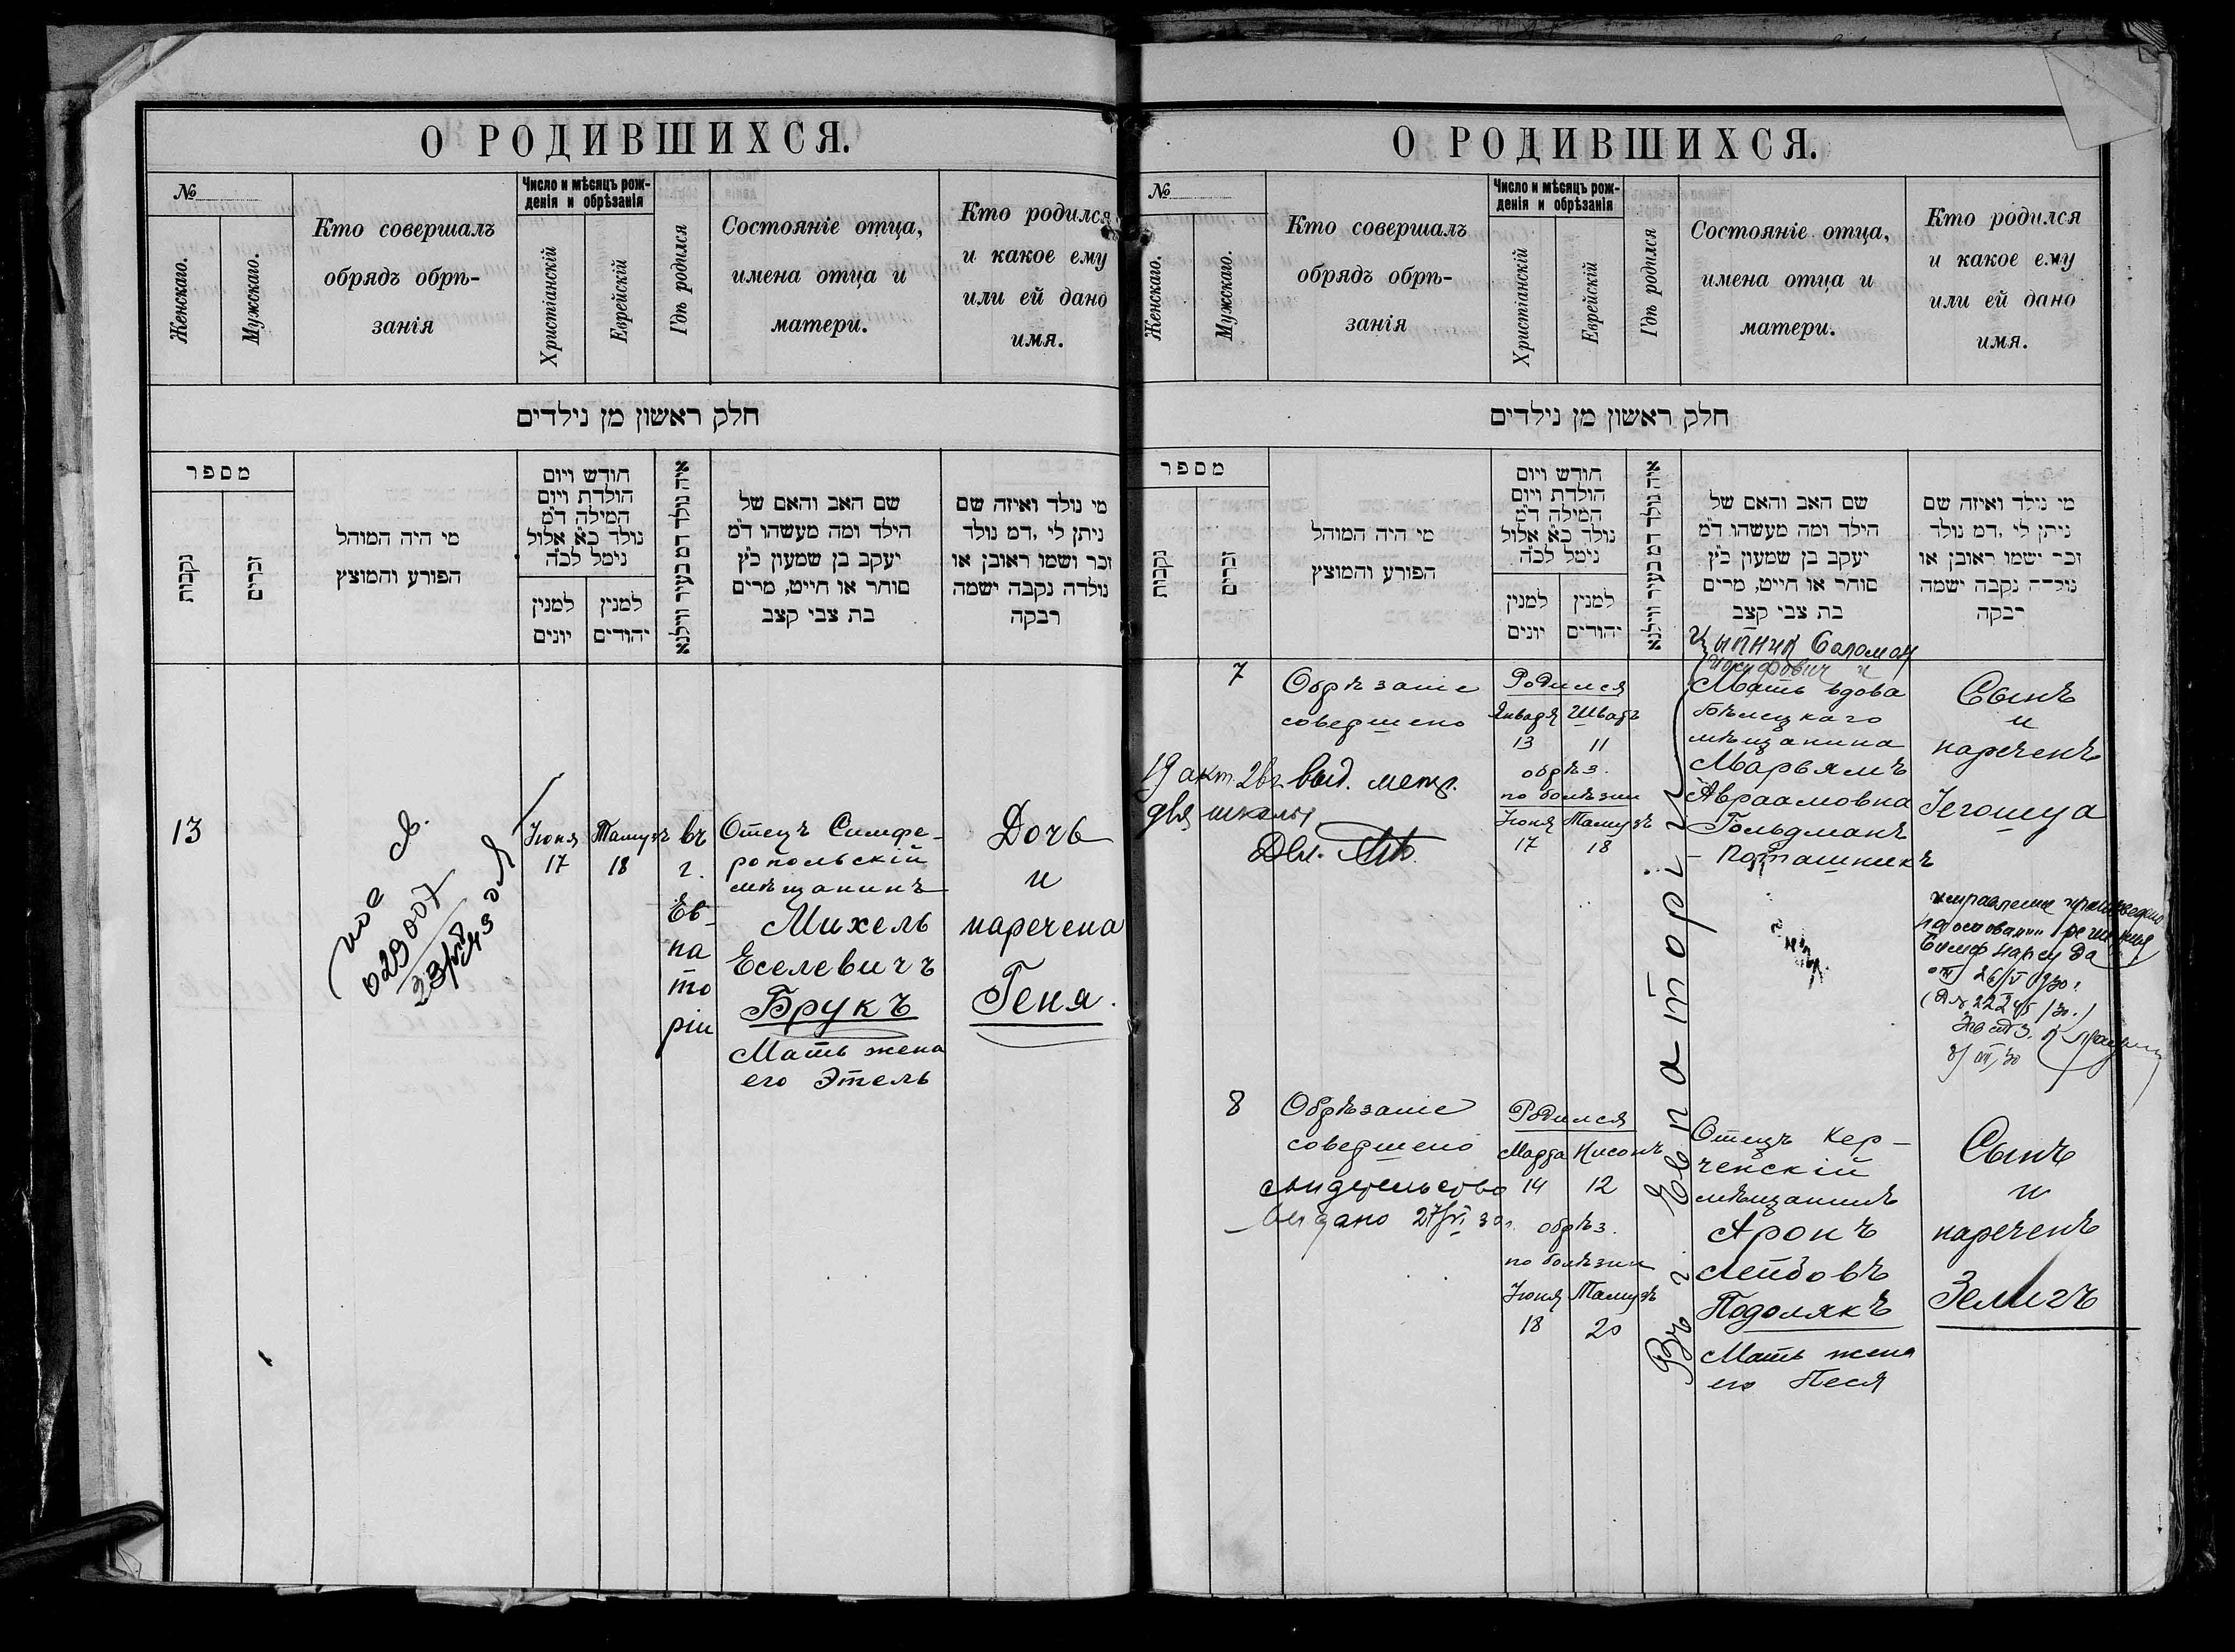 О РОДИВШИХСЯ.
№
Женскаго.
Мужскаго.
Кто совершалъ
обрядъ обрѣ-
занія
Число и мѣсяцъ рож-
денія и обрѣзанія
Христіанскій
Еврейскій
Гдѣ родился
Состояніе отца,
имена отца и
матери.
Кто родился
и какое ему
или ей дано
имя.
חלק ראשון מן נילדים
מספר
נקבות
זכרים
מי היה המוהל
הפורע והמוצץ
חודש ויום
הולדת ויום
המילה ד"מ
נולד כ"א אלול
נימל לכ"ה
למנין
יונים
למנין
יהודים
איה נולד דמ בעיר ווילנא
שם האב והאם של
הילד ומה מעשהו ד"מ
יעקב בן שמעון כ"ץ
סוחר או חייט, מרים
בת צבי קצב
מי נולד ואיזה שם
ניתן לי ,דמ נולד
זכר ושמו ראובן או
נולדה נקבה ישמה
רבקה
13
029007
Іюня
17
Тамузъ
18
въ
г.
Ев-
па
то
ріи
Отецъ Симфе-
ропольскій
мѣщанинъ
Михель
Еселевичъ
Брукъ
Мать жена
его Этель
Дочь
и
наречена
Геня.
О РОДИВШИХСЯ.
№
Женскаго.
Мужскаго.
Кто совершалъ
обрядъ обрѣ-
занія
Число и мѣсяцъ рож-
денія и обрѣзанія
Христіанскій
Еврейскій
Гдѣ родился
Состояніе отца,
имена отца и
матери.
Кто родился
и какое ему
или ей дано
имя.
חלק ראשון מן נילדים
מספר
נקבות
זכרים
מי היה המוהל
הפורע והמוצץ
חודש ויום
הולדת ויום
המילה ד"מ
נולד כ"א אלול
נימל לכ"ה
למנין
יונים
למנין
יהודים
איה נולד דמ בעיר ווילנא
שם האב והאם של
הילד ומה מעשהו ד"מ
יעקב בן שמעון כ"ץ
סוחר או חייט, מרים
בת צבי קצב
מי נולד ואיזה שם
ניתן לי ,דמ נולד
זכר ישמו ראובן או
נולדה נקבה ישמה
רבקה
7
Обрѣзаніе
совершено
19 окт. 26г. выд. метр.
для школы
Родился
Января Шватъ
13 11
обрѣз.
по болѣзни
Іюня Тамузъ
17 18
Въ г. Евпаторіи
Цыпник Соломон
Иосифович и
Мать вдова
мѣщанина
Марьямъ
Авраамовна
Гольдманъ
- Поташникъ
Сынъ
и
нареченъ
Іегошуа
исправление произведено
на основании решения
Симф нарсуда
от 26/V 30г.
8
Обрѣзаніе
совершено
свидетельство
выдано 27/VI 30г.
Родился
Марта Нисонъ
14 12
обрѣз.
по болѣзни
Іюня Тамузъ
18 20
Отецъ Кер-
ченскій
мѣщанинъ
Аронъ
Лейбовъ
Подолякъ
Мать жена
его Песя
Сынъ
и
нареченъ
Зелигъ